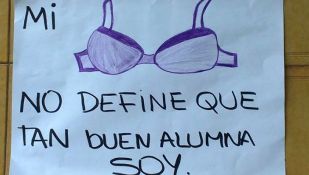 Mi
NO DEFINE QUE
TAN buEN ALUMNA
SOY.